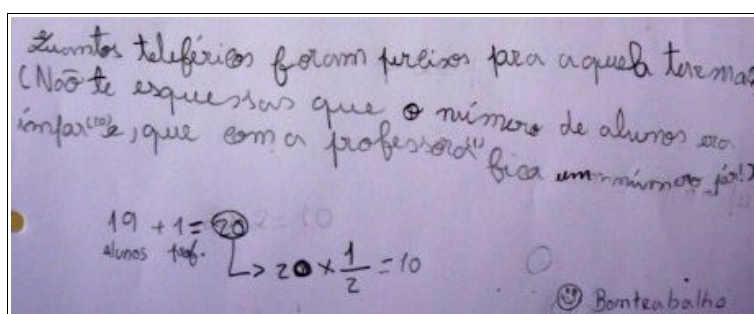 Quantos teleféricos foram preisos para aquela turma?
(Não te esquessas que o número de alunos era
ímpar(19)e, que com a professora(1) fica um número pár!)
19 + 1 = 20 2 = 10
Alunos prof.
20 × 1/2 = 10
Bom trabalho